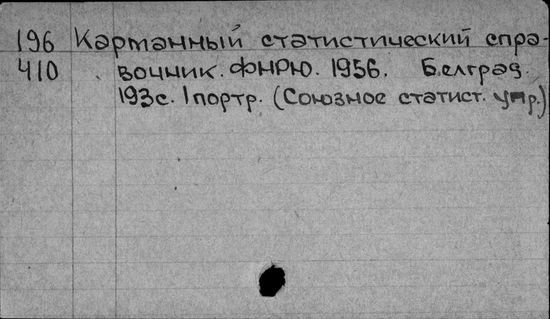 196 Карманный статистический спра-
410 вочник. ФНРЮ. 1956. Белград.
193с. 1портр. (Союзное статист. упр.)